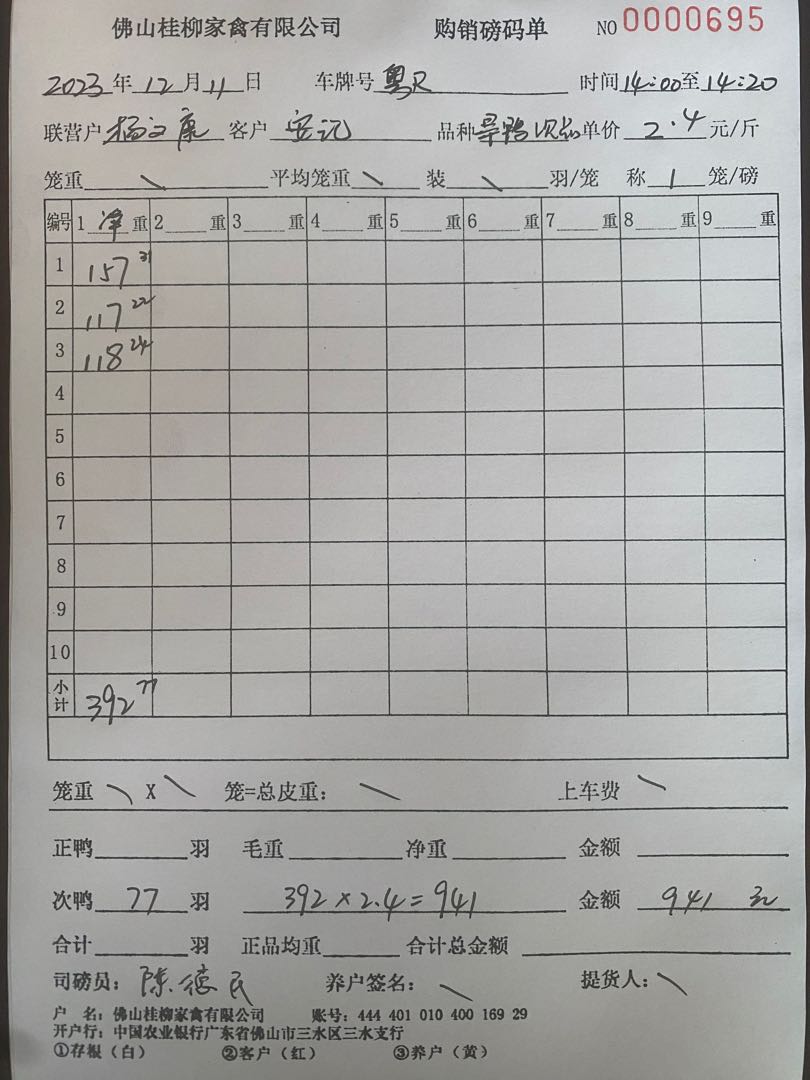 佛山桂柳家禽有限公司 购销磅码单 NO 0000695
2023年12月11日 车牌号 粤R 时间14:00至14:20
联营户 杨文康 客户 安记 品种 单价 2.4 元/斤
笼重 \ 平均笼重 \ 装 \ 羽/笼 称 1 笼/磅
编号 1 净 重 2 重 3 重 4 重 5 重 6 重 7 重 8 重 9 重
1 157 31
2 117 22
3 118 24
4
5
6
7
8
9
10
小计 392 77
笼重 \ X \ 笼=总皮重: \ 上车费 \
正鸭 羽 毛重 净重 金额
次鸭 77 羽 392×2.4=941 金额 941 元
合计 羽 正品均重 合计总金额
司磅员: 陈德民 养户签名: \ 提货人: \
户 名: 佛山桂柳家禽有限公司 账号: 444 401 010 400 169 29
开户行: 中国农业银行广东省佛山市三水区三水支行
①存根(白) ②客户(红) ③养户(黄)